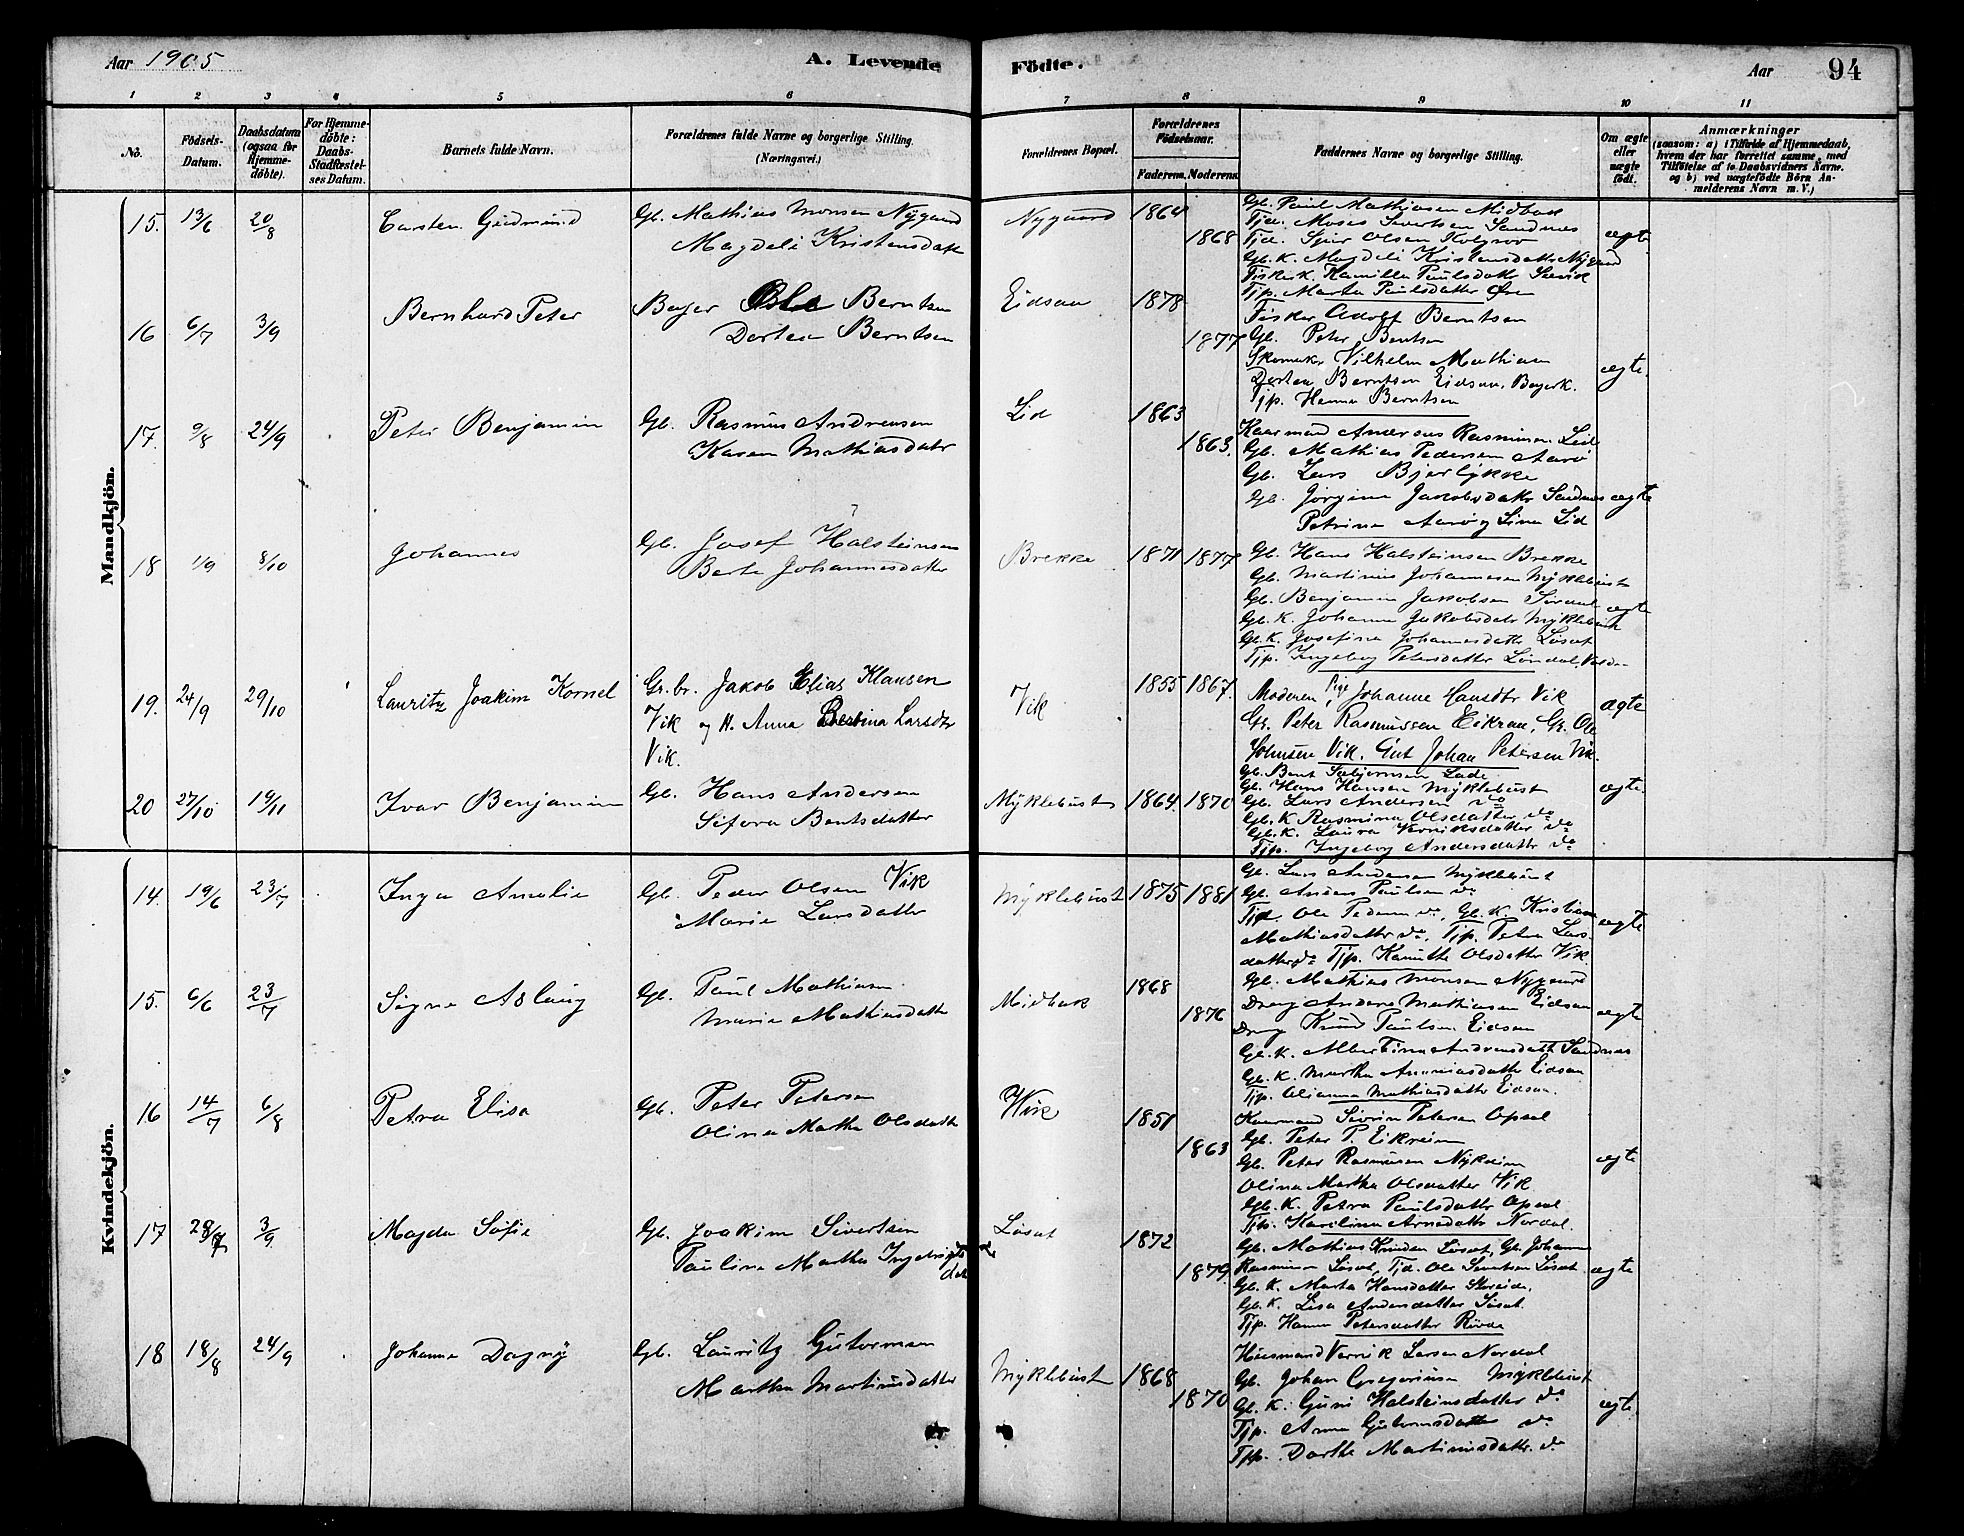 Aar 1905
A. Levende Födte.
Aar 94
1 2 3 4 5 6 7 8 9 10 11
No.
Födsels-Datum.
Daabsdatum (ogsaa for Hjemme-döbte).
For Hjemme-döbte: Daabs-Stadfæstel-ses Datum.
Barnets fulde Navn.
Forældrenes fulde Navne og borgerlige Stilling. (Næringsvei.)
Forældrenes Bopæl.
Forældrenes Födselsaar.
Faderens. Moderens.
Faddernes Navne og borgerlige Stilling.
Om ægte eller uægte födt.
Anmærkninger
(saasom: a) i Tilfælde af Hjemmedaab,
hvem der har forrettet samme, med
Tilföielse af to Daabsvidners Navne.
og b) ved uægtefödte Börn An-
melderens Navn m. V.)
Mandkjön.
15. 13/6 20/8 Carsten Gudmund
Gb. Mathias Monsen Nygaard
Magdeli Kristensdatt
Nygaard 1864 1868
Gb. Paul Mathiasen Midbøe
Tjd. Moses Sivertsen Sandnes
Tjd. Sjur Olsen
Gb. K. Magdeli Kristensdatter Nygaard
Fiskerk. Kamilla Paulsdatter
Tjp. Marta Paulsdatter Øen
ægte
16 6/7 3/9 Bernhard Peter
Bager Ole Berntsen
Dortea Berntsen
Eidsaa 1878 1877
Fisker Adolf Berntsen
Gb. Peter Bentsen
Skomaker Vilhelm Mathisen
Dortea Berntsen Eidsaa, Bagerk.
Tjp. Hanna Berntsen
ægte.
17. 9/8 24/9 Peter Benjamin
Gb. Rasmus Andreassen
Karen Mathiasdatr
Lid 1863 1863.
Kaarmand Andreas Rasmussen Lid
Gb. Mathias Pedersen Aarø
Gb. Lars Bjerlykke
Gb. Jørgine Jakobsdatr Sandnes
Petrina Aarø og Lina Lid
ægte
18 1/9 8/10 Johannes
Gb. Josef Halsteinsen
Berte Johannesdatter
Brekke 1871 1877
Gb. Hans Halsteinsen Brekke
Gb. Martinus Johannesen Myklebust
Gb. Benjamin Jakobsen Sørdal
Gb. K. Johanna Jakobsdatr Myklebust
Gb. K. Josefina Johannesdatter Løset
Tjp. Ingeborg Petersdatter
ægte
19. 24/9 29/10 Lauritz Joakim Kornel
Gr. br. Jakob Elias Klausen
Vik og H. Anna Bertina Larsdtr
Vik.
Vik 1855 1867.
Moderen, Pige Johanne Hansdtr Vik
Gr. Peter Rasmussen Eikrem, Gr. Ole
Johnsen Vik. Gut Johan Petersen Vik.
ægte
20 27/10 19/11 Ivar Benjamin
Gb. Hans Andersen
Sefora Bentsdatter
Myklebust 1864. 1870
Gb. Bent
Gb. Hans Hansen Myklebust
Gb. Lars Andersen do
Gb. K Rasmina Olsdatter do
Gb. K. Laura Verniksdatter do
Tjp. Ingeborg Andersdatter do
ægte.
Kvindekjön.
14. 19/6 23/7 Inga Amalie
Gb. Peder Olsen Vik
Marie Larsdatter
Myklebust 1875 1881
Gb. Lars Andersen Myklebust
Gb. Anders Paulsen do
Tjd. Ole Pedersen do, Gb. K. Kristiane
Mathiasdatter do, Tjp. Petra Lars-
datter do Tjp. Kamitte Olsdatter Vik.
ægte
15. 6/6 23/7 Signe Aslaug
Gb. Paul Mathiasen
Marie Mathiasdatter
Midbøe 1868 1876
Gb. Mathias Monsen Nygaard
Dreng Anders Mathiassen Eidsaa
Dreng Knud Paulsen Eidsaa
Gb. K. Albertine Andreasdatr Sandnes
Gb. K. Martha Ananiasdatter Eidsaa
Tjp. Olianna Mathiasdatter Eidsaa.
ægte
16 14/7 6/8 Petra Elisa
Gb. Peter Petersen
Olina Martha Olsdatter
Vik 1851 1863
Kaarmand Sivrin Petersen Opsal
Gb. Peter P. Eikrem
Gb. Peter Rasmussen Nykrim
Olina Martha Olsdatter Vik
Gb. K. Petra Paulsdatter Opsal
Tjp. Karolina Arnedatter Nordal.
ægte
17 28/7 3/9 Magda Sofie
Gb. Joakim Sivertsen
Pauline Martha Ingebrigts
datr
Løset 1872 1879
Gb. Mathias Knudsen Løset, Gb. Johannes
Rasmussen Løset, Tjd. Ole Sivertsen Løset
Gb. K. Marta Hansdatter Storeide,
Gb. K. Lisa Andersdatter Løset
Tjp. Hanna Petersdatter Rovde
ægte
18 18/8 24/9 Johanna Dagny
Gb. Lauritz Gutormsen
Martha Martinusdatter
Myklebust 1868 1870
Husmand Vernik Larsen Nordal
Gb. Johan Gregorius Myklebust
Gb. K. Guri Halsteinsdatter do
Tjp. Anna Gutormsdatter do
Tjp. Dorthe Martinusdatter do
ægte